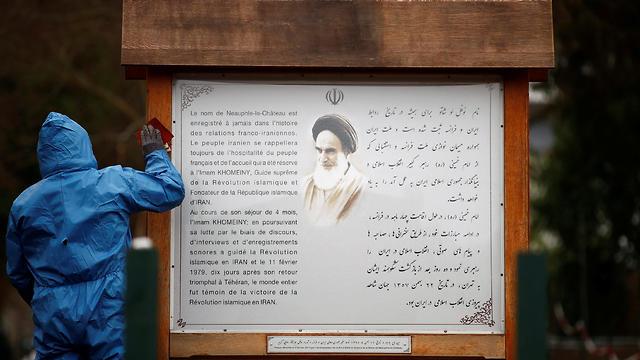 Le nom de Neauphle-le-Château est
enregistré à jamais dans l'histoire
des relations franco-iraniennes.
Le peuple iranien se rappellera
toujours de l'hospitalité du peuple
français et de l'accueil qui a été réservé
à l'Imam KHOMEINY, Guide suprême
de la Révolution islamique et
Fondateur de la République islamique
d'IRAN.
Au cours de son séjour de 4 mois,
l'imam KHOMEINY; en poursuivant
sa lutte par le biais de discours,
d'interviews et d'enregistrements
sonores a guidé la Révolution
islamique en IRAN et le 11 février
1979, dix jours après son retour
triomphal à Téhéran, le monde entier
fut témoin de la victoire de la
Révolution islamique en IRAN.
نام نوفل لو شاتو برای همیشه در تاریخ روابط
ایران و فرانسه ثبت شده است و ملت ایران
همواره میهمان نوازی ملت فرانسه و استقبالی که
از امام خمینی (ره) رهبر کبیر انقلاب اسلامی و
بنیانگذار جمهوری اسلامی ایران به عمل آمد را به یاد
خواهد داشت.
امام خمینی (ره) در طول اقامت چهار ماهه در فرانسه،
در ادامه مبارزات خود از طریق سخنرانی ها، مصاحبه ها
و پیام های صوتی، انقلاب اسلامی در ایران را
رهبری نمود و ده روز بعد از بازگشت شکوهمند ایشان
به تهران، در تاریخ ۲۲ بهمن ۱۳۵۷ جهان شاهد
پیروزی انقلاب اسلامی در ایران بود.